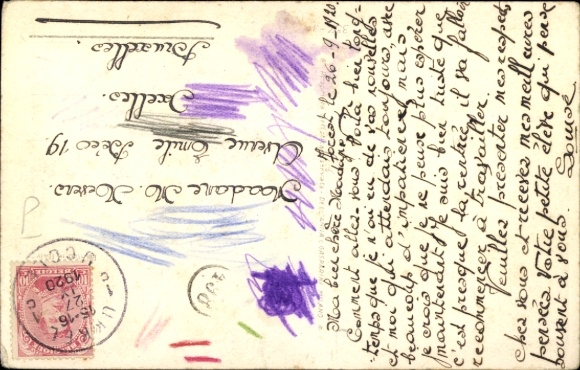 Madame M. Meyers.
Avenue Emile Béco 19.
Ixelles.
Bruxelles.
UCCLE
15-16
1920
UKKEL
10
Hoccet le 26-9-1920.
Ma bien chère Madame,
Comment allez-vous? Voilà bien longtemps
que je n'ai eu de vos nouvelles
et moi qui attendais toujours, avec
beaucoup d'impatience, mais
je crois que je ne peux plus espérer
maintenant. Je suis bien triste que
c'est presque la rentrée, il va falloir
recommencer à travailler.
Veuillez présenter mes respects
chez vous et recevez mes meilleures
pensées. Votre petite élève qui pense
souvent à vous.
Louise